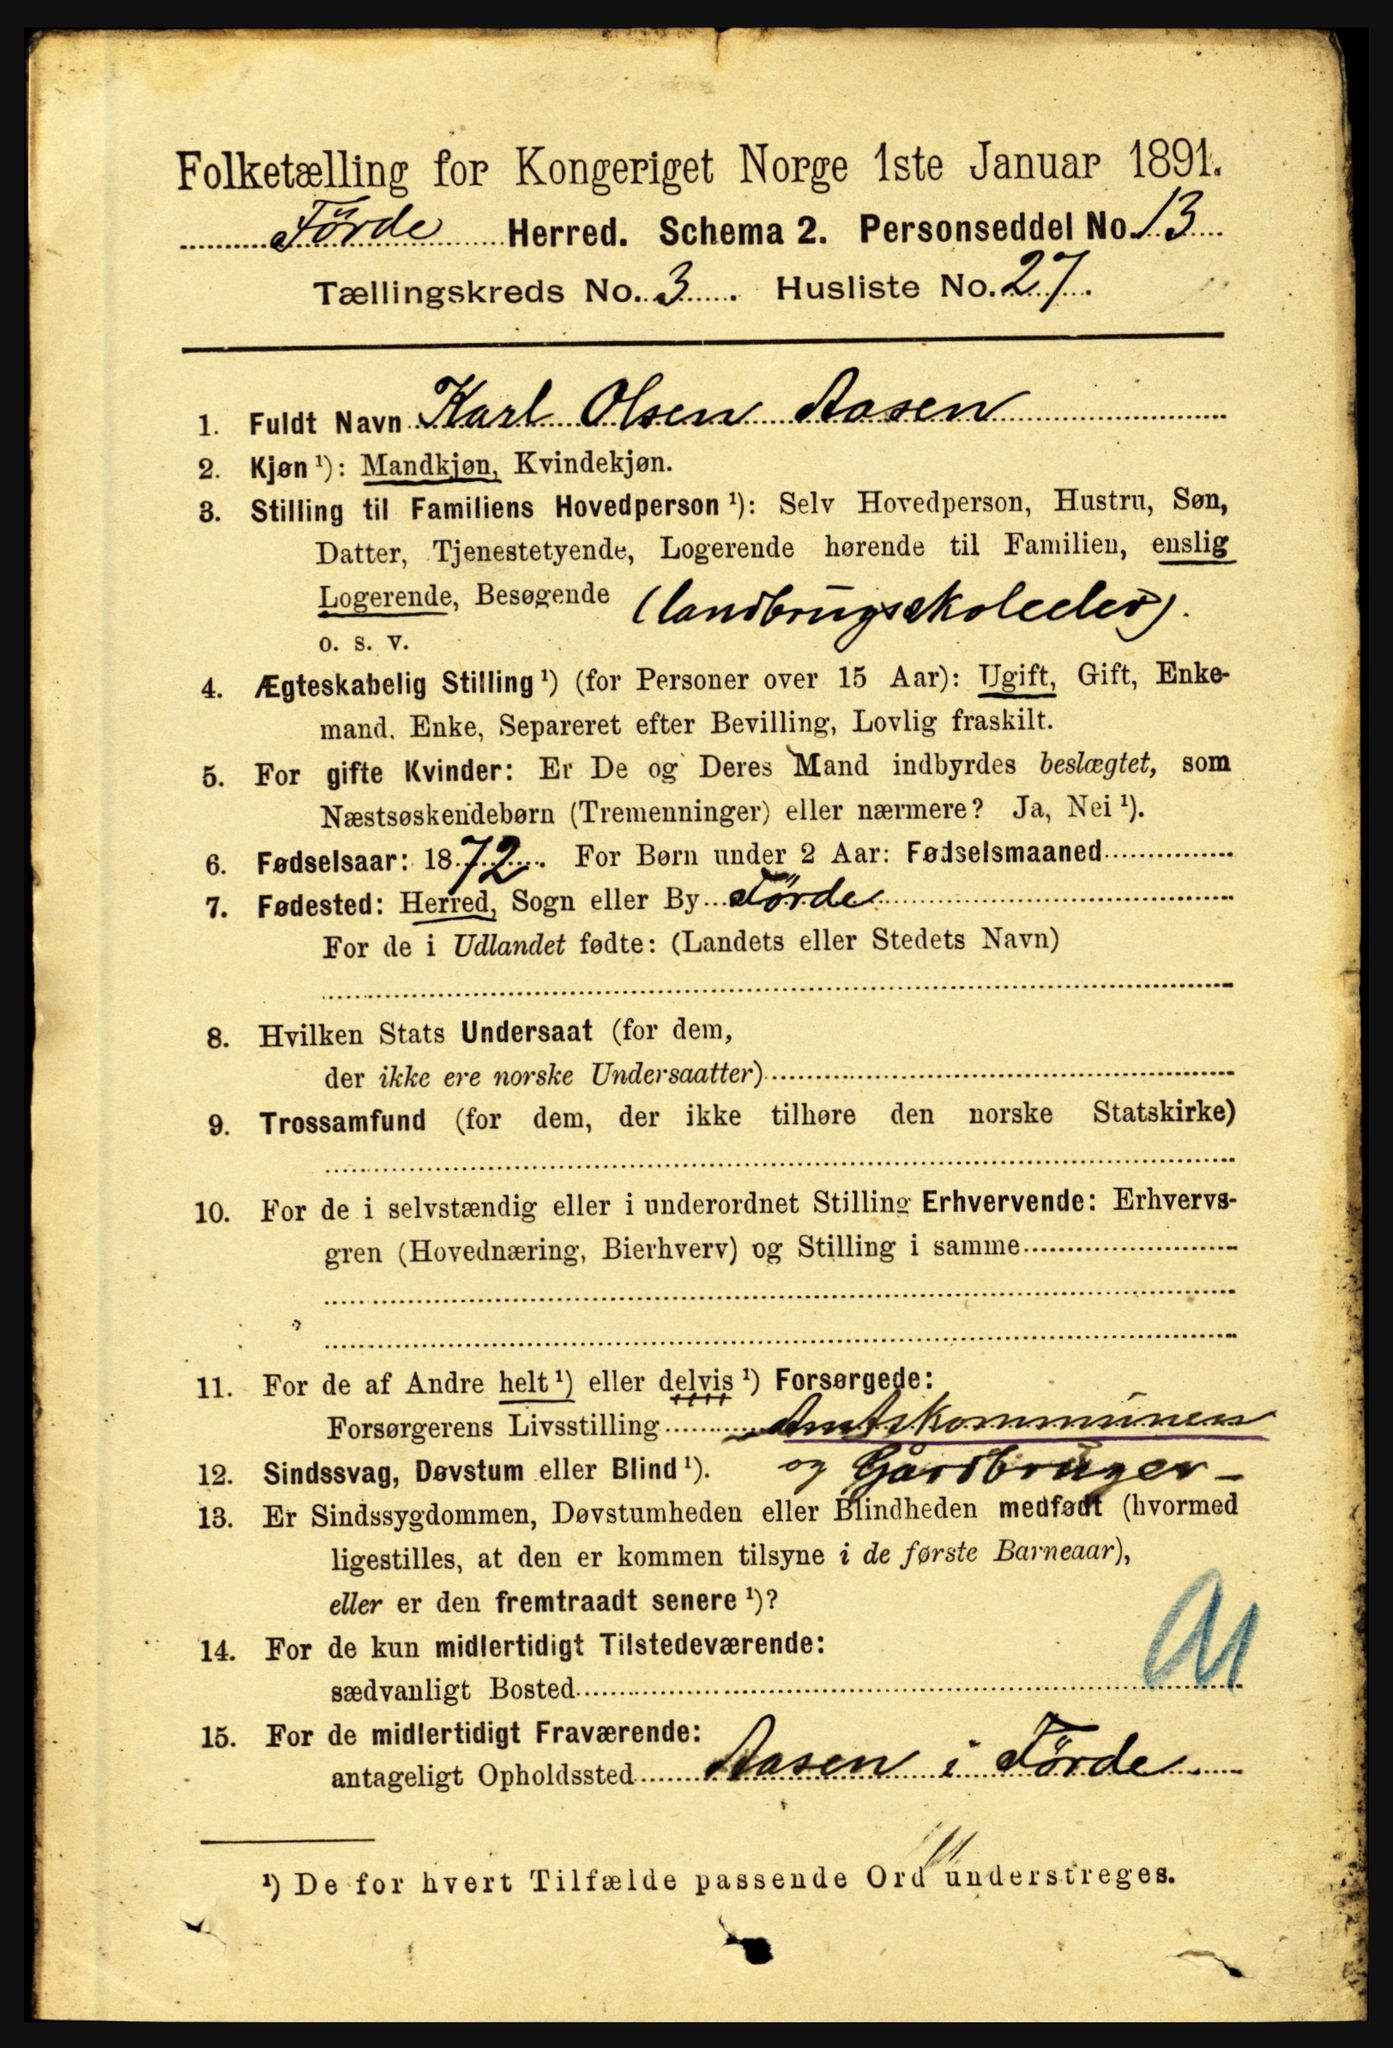 Folketælling for Kongeriget Norge 1ste Januar 1891.
Førde Herred. Schema 2. Personseddel No. 13
Tællingskreds No. 3. Husliste No. 27.
1. Fuldt Navn Karl Olsen Aasen
2. Kjøn ¹): Mandkjøn, Kvindekjøn.
3. Stilling til Familiens Hovedperson ¹): Selv Hovedperson, Hustru, Søn,
Datter, Tjenestetyende, Logerende hørende til Familien, enslig
Logerende, Besøgende (landbrugsskoleelev).
o. s. v.
4. Ægteskabelig Stilling ¹) (for Personer over 15 Aar): Ugift, Gift, Enke-
mand, Enke, Separeret efter Bevilling, Lovlig fraskilt.
5. For gifte Kvinder: Er De og Deres Mand indbyrdes beslægtet, som
Næstsøskendebørn (Tremenninger) eller nærmere? Ja, Nei ¹).
6. Fødselsaar: 1872. For Børn under 2 Aar: Fødselsmaaned
7. Fødested: Herred, Sogn eller By Førde
For de i Udlandet fødte: (Landets eller Stedets Navn)
8. Hvilken Stats Undersaat (for dem,
der ikke ere norske Undersaatter)
9. Trossamfund (for dem, der ikke tilhøre den norske Statskirke)
10. For de i selvstændig eller i underordnet Stilling Erhvervende: Erhvervs-
gren (Hovednæring, Bierhverv) og Stilling i samme
11. For de af Andre helt ¹) eller delvis ¹) Forsørgede:
Forsørgerens Livsstilling Amtskommunen
12. Sindssvag, Døvstum eller Blind ¹). og Gårdbruger -
13. Er Sindssygdommen, Døvstumheden eller Blindheden medfødt (hvormed
ligestilles, at den er kommen tilsyne i de første Barneaar),
eller er den fremtraadt senere ¹)?
14. For de kun midlertidigt Tilstedeværende:
sædvanligt Bosted
15. For de midlertidigt Fraværende:
antageligt Opholdssted Aasen i Førde
¹) De for hvert Tilfælde passende Ord understreges.